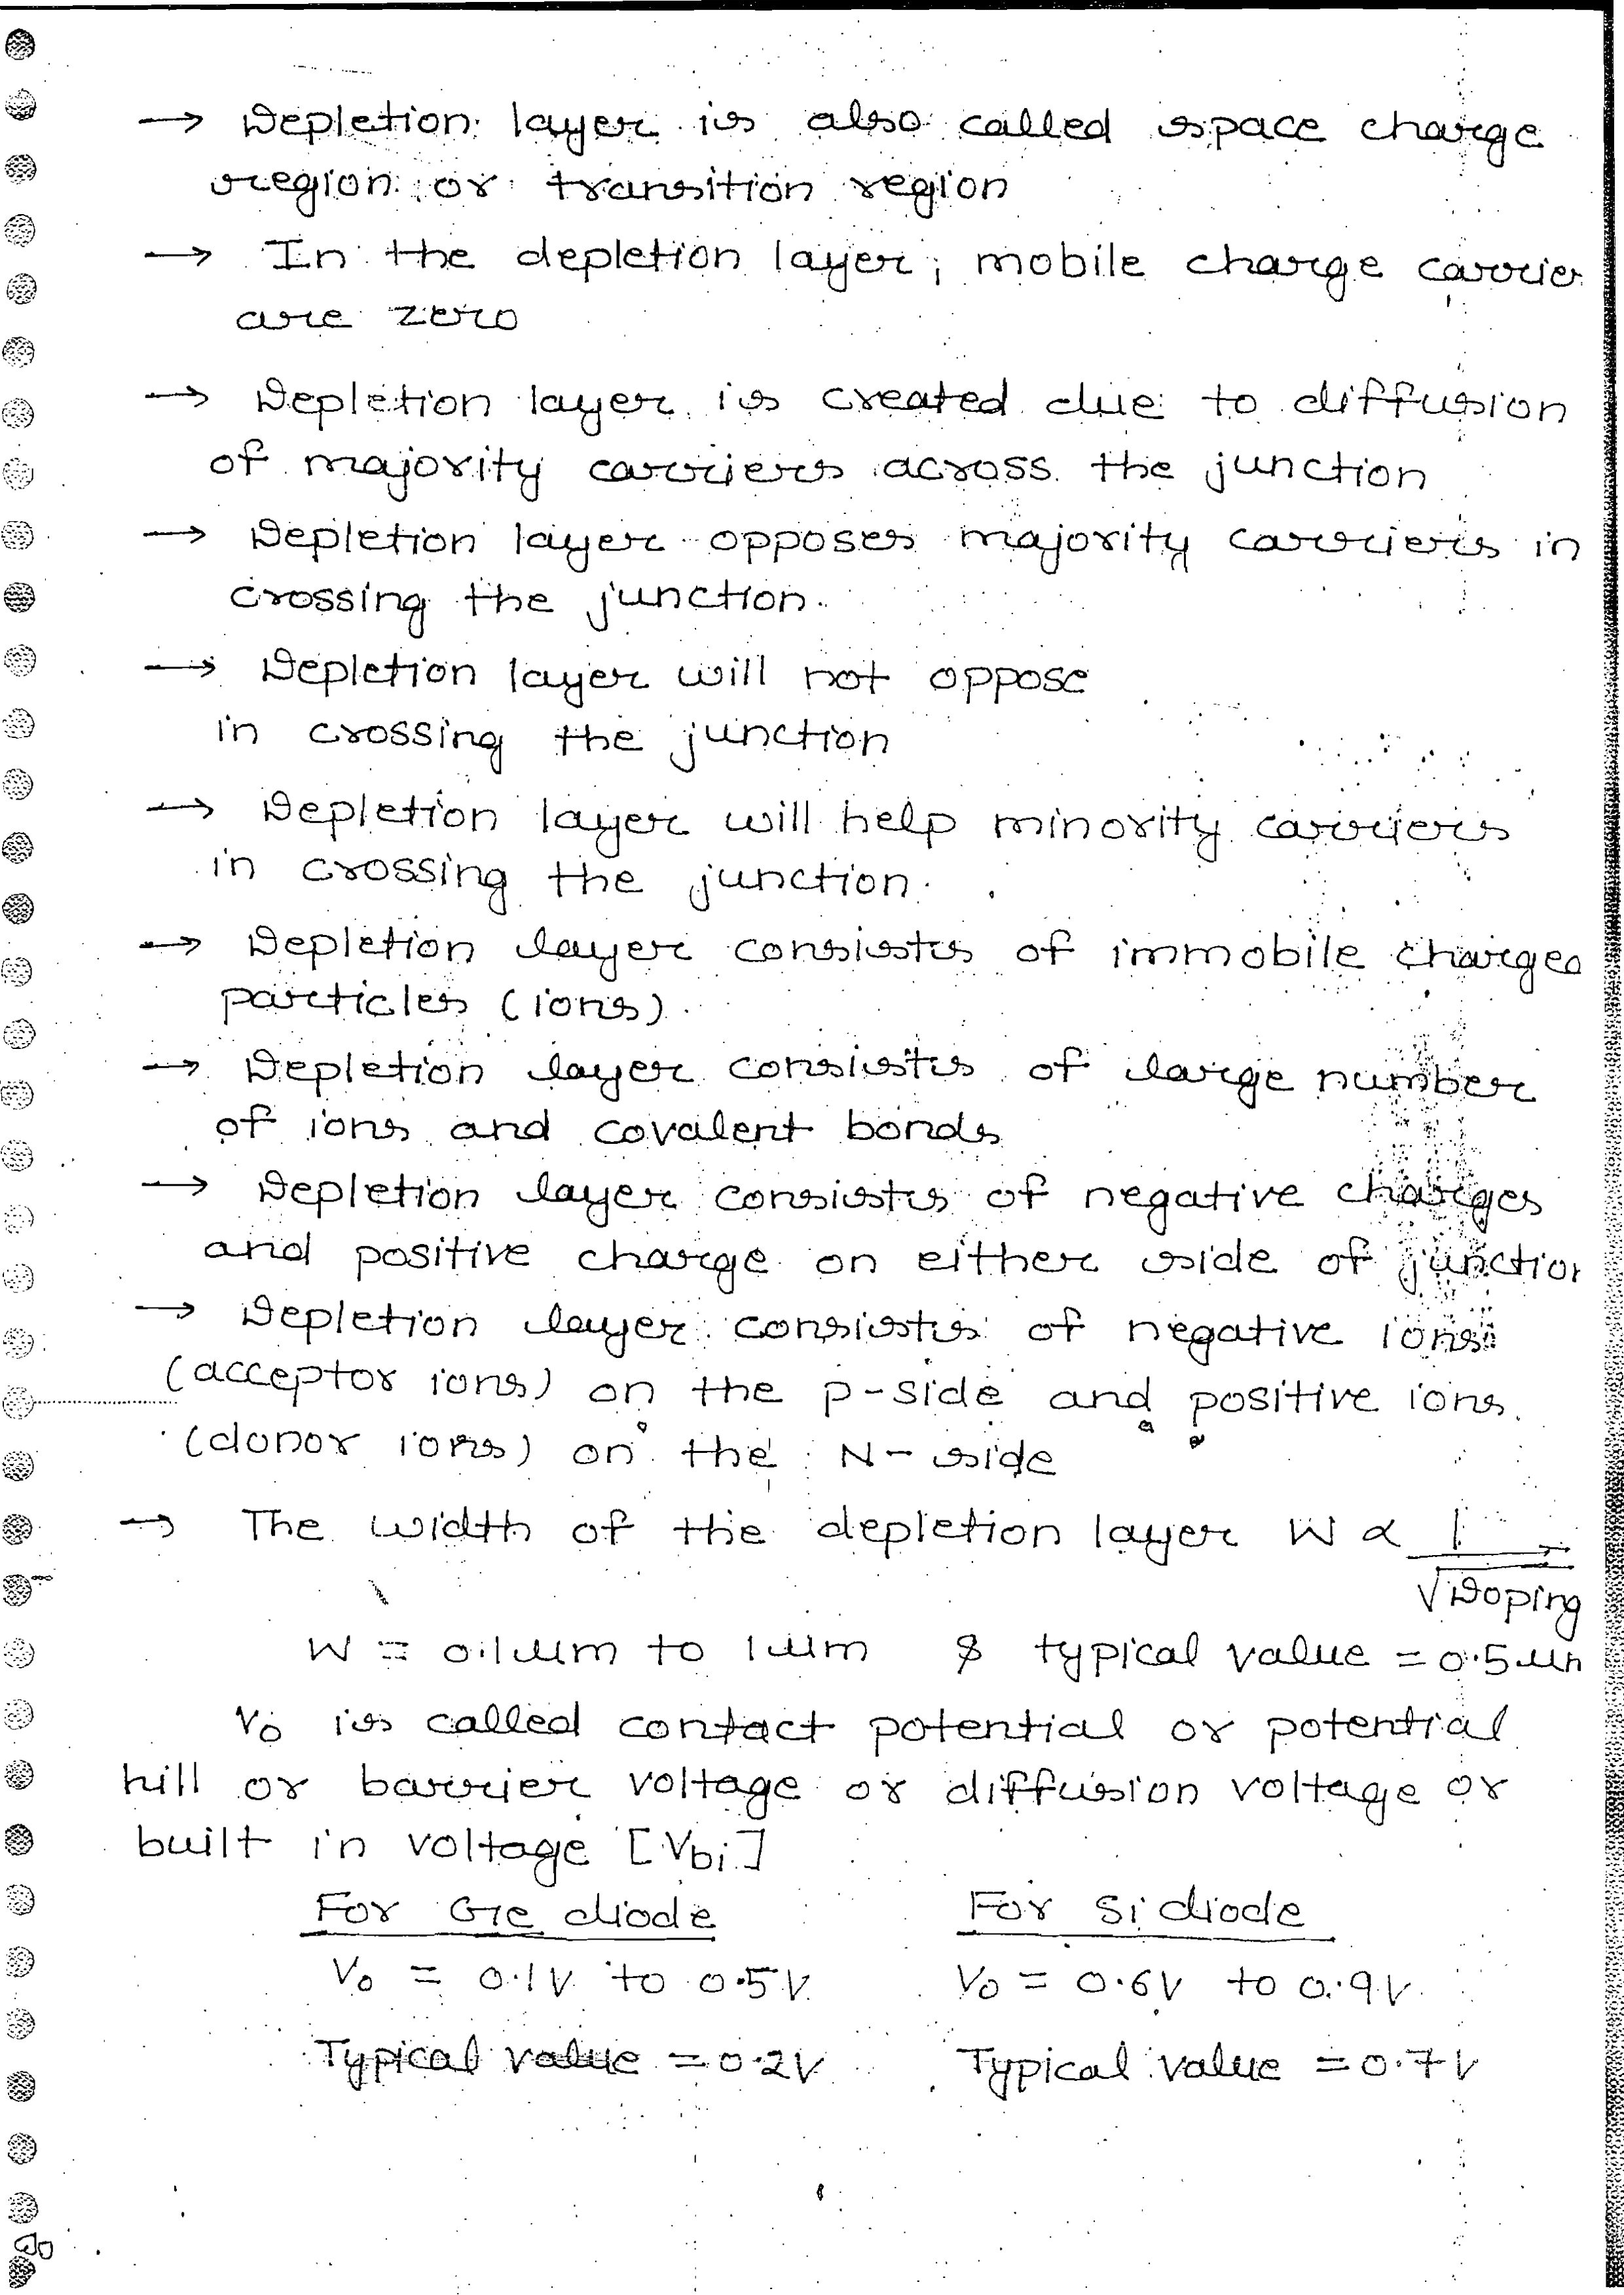 → Depletion layer is also called space charge
region or transition region
→ In the depletion layer, mobile charge carrier
are zero
→ Depletion layer is created due to diffusion
of majority carriers across the junction
→ Depletion layer opposes majority carriers in
crossing the junction.
→ Depletion layer will not oppose
in crossing the junction
→ Depletion layer will help minority carriers
in crossing the junction.
→ Depletion layer consists of immobile charged
particles (ions).
→ Depletion layer consists of large number
of ions and covalent bonds
→ Depletion layer consists of negative charges
and positive charge on either side of junction
→ Depletion layer consists of negative ions
(acceptor ions) on the p-side and positive ions.
(donor ions) on the N-side
→ The width of the depletion layer W ∝ 1
√Doping
W = 0.1μm to 1μm & typical value = 0.5μm
V₀ is called contact potential or potential
hill or barrier voltage or diffusion voltage or
built in voltage [Vbi]
For Ge diode For Si diode
V₀ = 0.1V to 0.5V V₀ = 0.6V to 0.9V
Typical value = 0.2V Typical value = 0.7V